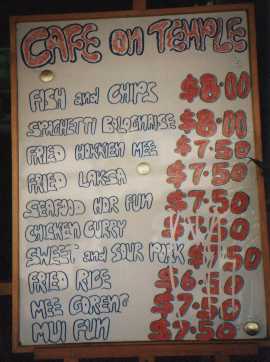 CAFE on TEMPLE
FISH and CHIPS $8.00
SPAGHETTI BOLOGNAISE $8.00
FRIED HOKKIEN MEE $7.50
FRIED LAKSA $7.50
SEAFOOD HOR FUN $7.50
CHICKEN CURRY $7.50
SWEET and SOUR PORK $7.50
FRIED RICE $6.50
MEE GORENG $7.50
MUI FUN $7.50